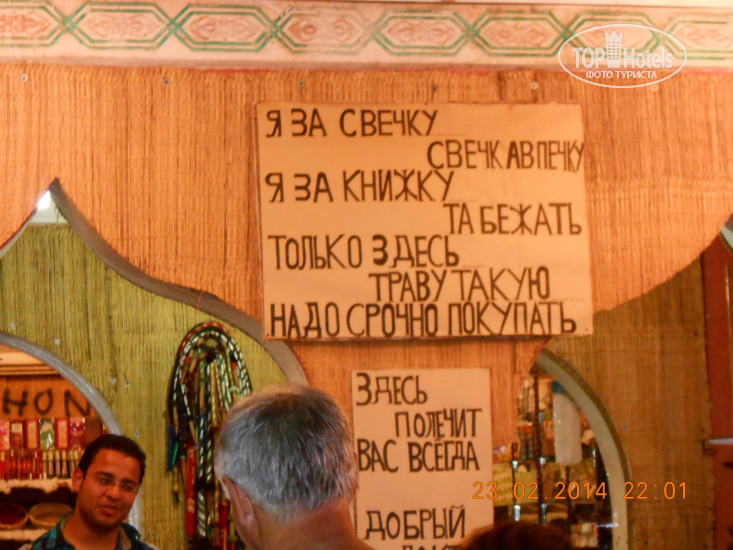 TOP Hotels
ФОТО ТУРИСТА
Я ЗА СВЕЧКУ
СВЕЧКАВПЕЧКУ
Я ЗА КНИЖКУ
ТА БЕЖАТЬ
ТОЛЬКО ЗДЕСЬ
ТРАВУ ТАКУЮ
НАДО СРОЧНО ПОКУПАТЬ
ЗДЕСЬ
ПОЛЕЧИТ
ВАС ВСЕГДА
ДОБРЫЙ
HON
23.02.2014 22:01